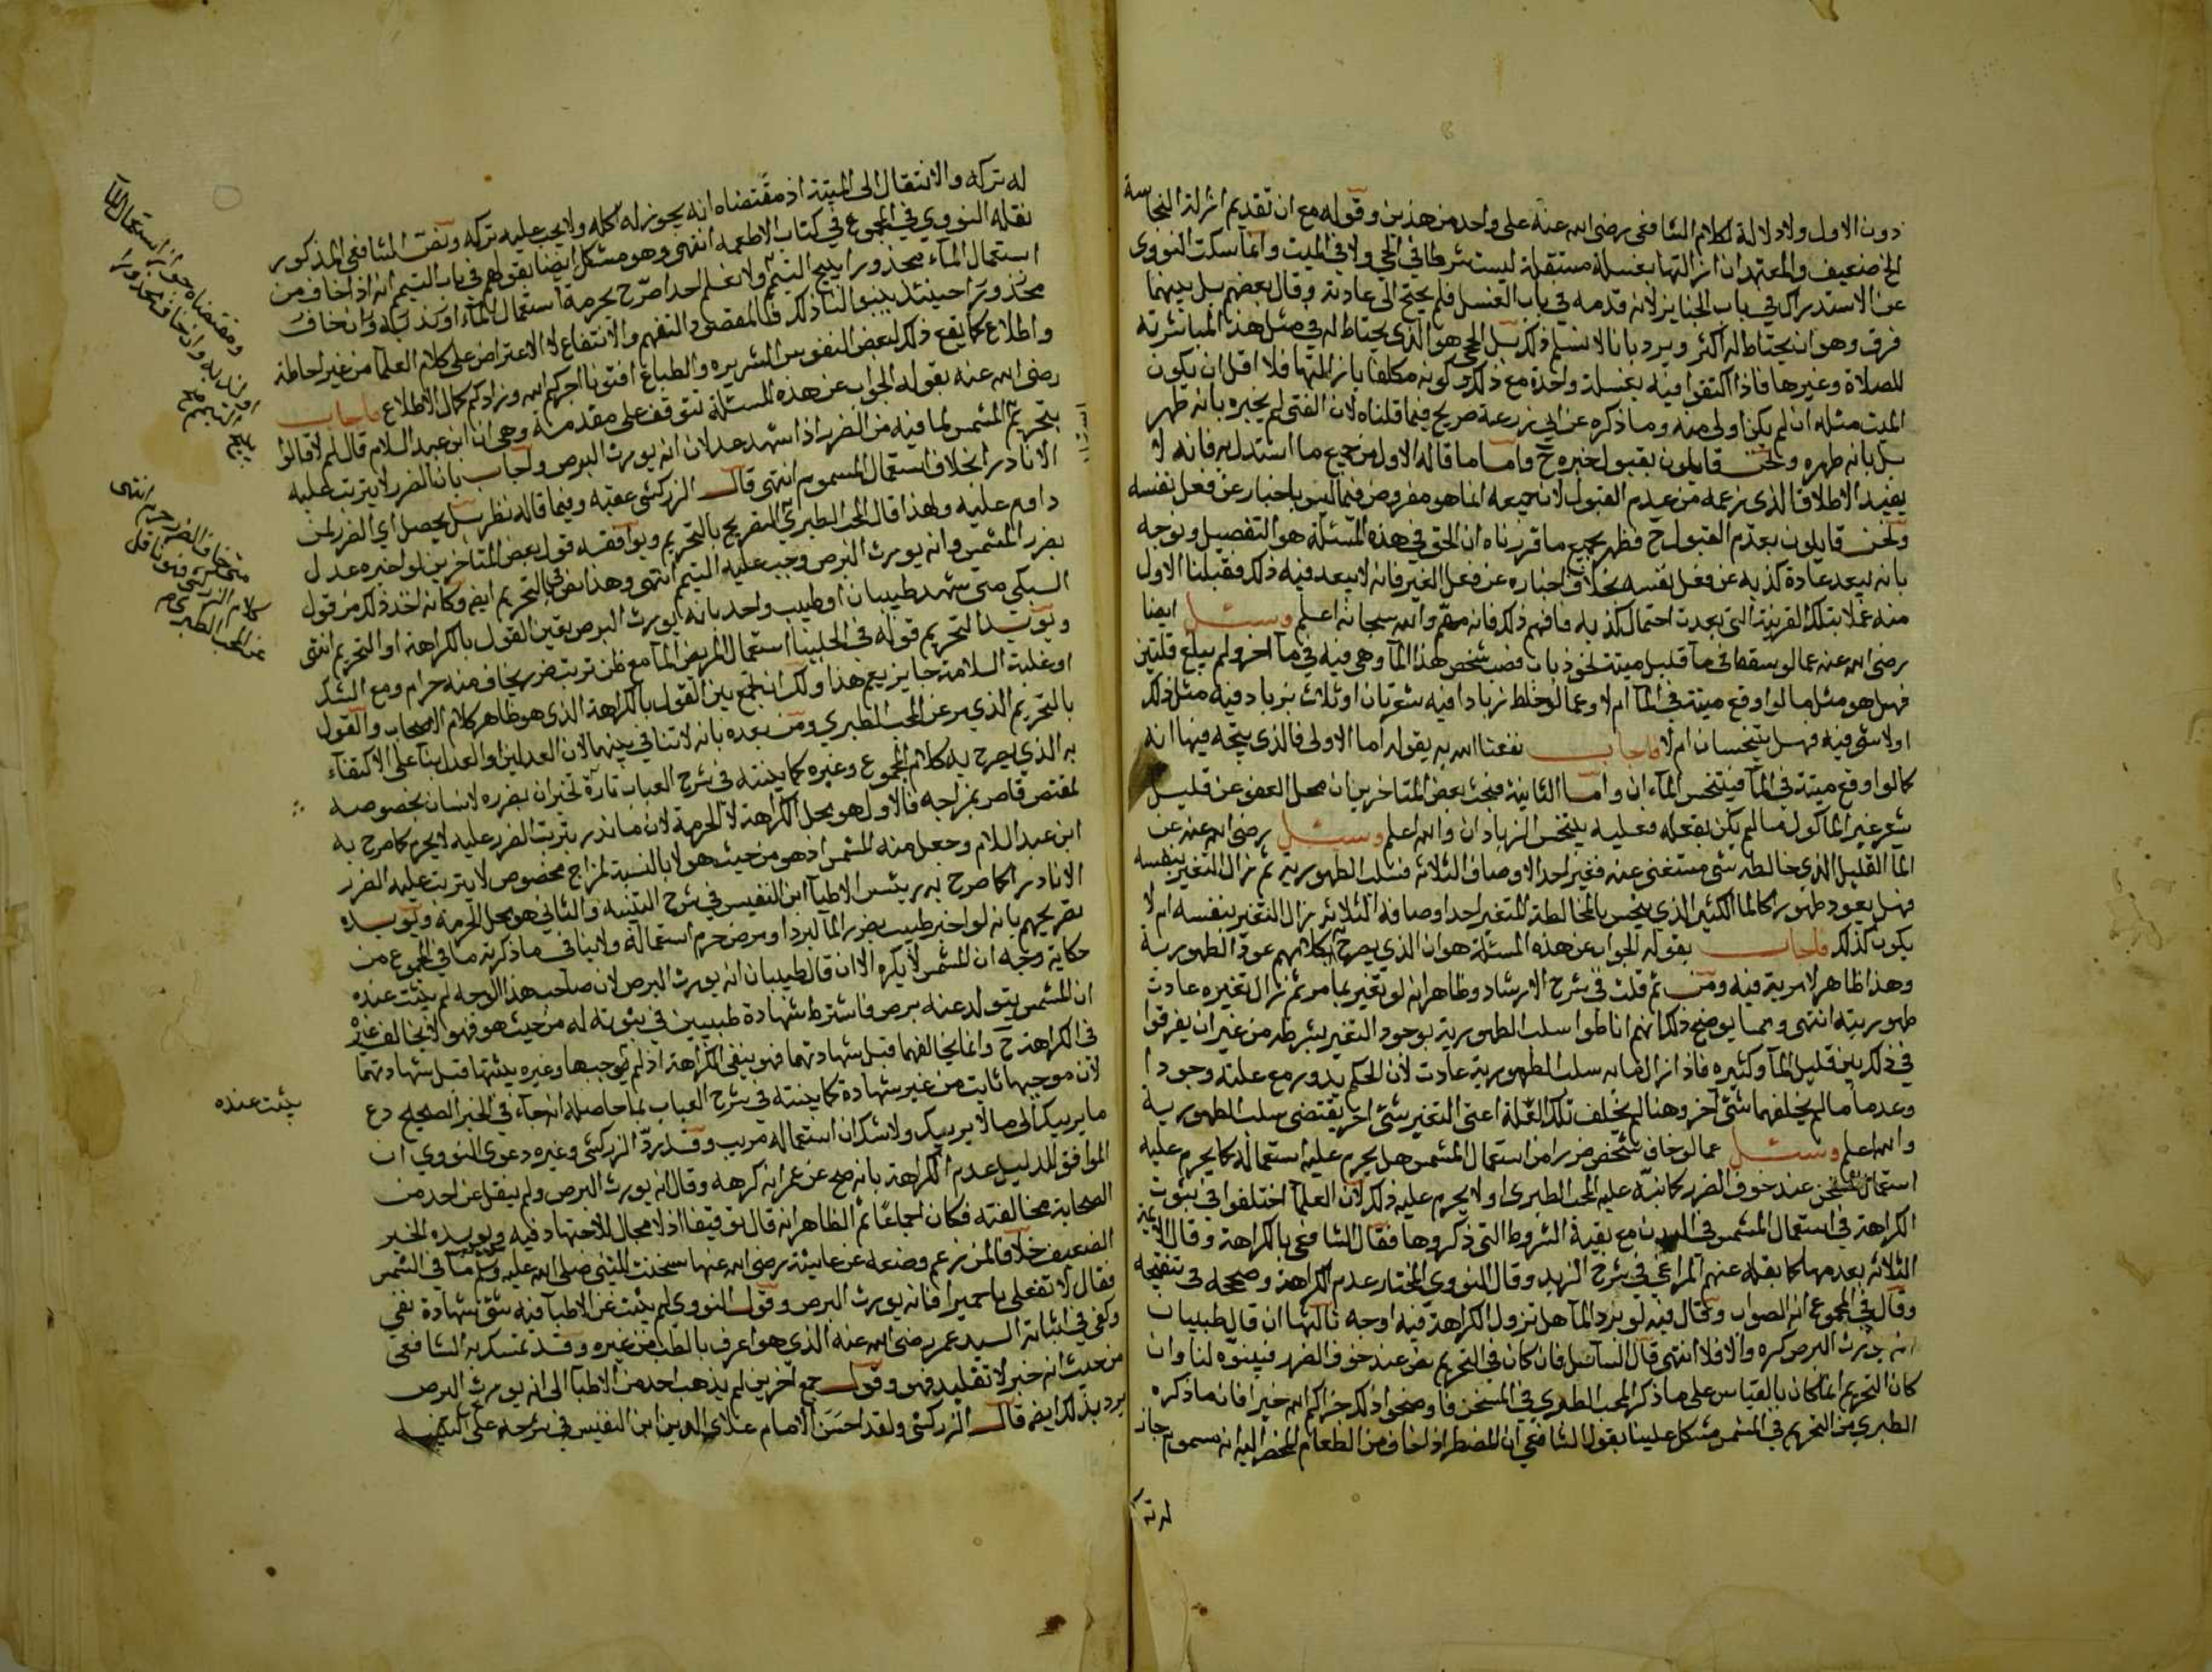 دون الاول ولا دلالة لكلام الشافعي رضي الله عنه على واحد من هذين وقوله مع ان تقديم ازالة النجاسة
الخ ضعيف والمعتمد ان ازالتها بغسلة مستقلة ليست شرطا في الحي ولا في الميت وانما سكت النووي
عن الاستدراك في باب الجنايز لانه قدمه في باب الغسل فلم يحتج الى عادته وقال بعضهم بل بينهما
فرق وهو ان يحتاط له اكثر ويرد بانا لا نسلم ذلك بل الحي هو الذي يحتاط له في مثل هذا لمباشرته
للصلاة وغيرها فاذا اكتفوا فيه بغسلة واحدة مع ذلك وكونه مكلفا بازالتها فلا اقل ان يكون
الميت مثله ان لم يكن اولى منه وما ذكره عن ابي زرعة صريح فيما قلناه لان الفتى لم يخبره بانه طهر
بل بانه طهره ونحن قايلون بقبول خبره ح واما ما قاله الاول من جميع ما استدل به فانه لا
يفيد الاطلاق الذي زعمه من عدم القبول لان جميعه انما هو مفروض فيما ليس باخبار عن فعل نفسه
ونحن قايلون بعدم القبول ح فظهر بجميع ما قررناه ان الحق في هذه المسئلة هو التفصيل ونوجه
بانه يبعد عادة كذبه عن فعل نفسه بخلاف اخباره عن فعل الغير فانه لا يبعد فيه ذلك فقبلنا الاول
منه عملا بتلك القرينة التي بعدت احتمال كذبه فافهم ذلك فانه مهم والله سبحانه اعلم وسئل ايضا
رضي الله عنه عما لو سقط في ماء قليل ميتة نحو ذباب فصب شخص هذا الماء وهي فيه في ماء آخر ولم يبلغ قلتين
فهل هو مثل ما لو اوقع ميتة في الماء ام لا وعما لو خلط زبادا فيه شعرتان او ثلاث بزباد فيه مثل ذلك
اولا شي فيه فهل يتنجسان ام لا فاجاب نفعنا الله به بقوله اما الاولى فالذي يتجه فيها انه
كما لو اوقع ميتة في الماء فيتنجس الماءان واما الثانية فبحث بعض المتاخرين ان محل العفو عن قليل
شعر غير الماكول ما لم يكن بفعله فعليه يتنجس الزبادان والله اعلم وسئل رضي الله عنه عن
الماء القليل الذي خالطه شي مستغنى عنه فغير احد الاوصاف الثلاثة فسلب الطهورية ثم زال التغير بنفسه
فهل يعود طهورا كالماء الكثير الذي ينجس بالمخالطة المتغير احد اوصافه الثلاثة بزوال التغير بنفسه ام لا
يكون كذلك فاجاب بقوله الجواب عن هذه المسئلة هو ان الذي يصرح به كلامهم عود الطهورية
وهذا ظاهر لا مرية فيه ومن ثم قلت في شرح الارشاد وظاهر انه لو تغير بما مر ثم زال تغيره عادت
طهوريته انتهى ومما يوضح ذلك انهم اناطوا سلب الطهورية بوجود التغير بشرطه من غير ان يفرقوا
في ذلك بين قليل الماء وكثيره فاذا زال ما به سلب الطهورية عادت لان الحكم يدور مع علته وجودا
وعدما ما لم يخلفها شي آخر وهنا لم يخلف تلك العلة اعني التغير بشي اخر يقتضي سلب الطهورية
والله اعلم وسئل عما لو خاف شخص ضررا من استعمال المشمس هل يحرم عليه استعماله كما يحرم عليه
استعمال المسخن عند خوف الضرر كما نبه عليه المحب الطبري او لا يحرم عليه ذلك لان العلماء اختلفوا في ثبوت
الكراهة في استعمال المشمس في البدن مع بقية الشروط التي ذكروها فقال الشافعي بالكراهة وقال الائمة
الثلاثة بعدمها كما نقله عنهم المراغي في شرح الزبد وقال النووي المختار عدم الكراهة وصححه في تنقيحه
وقال في المجموع انه الصواب وقال فيه لو برد الماء هل تزول الكراهة فيه اوجه ثالثها ان قال طبيبان
انه يورث البرص كره والا فلا انتهى قال السائل فان كان في التحريم نص عند خوف الضرر فبينوه لنا وان
كان التحريم انما كان بالقياس على ما ذكره المحب الطبري في المسخن فاوضحوا ذلك جزاكم الله خيرا فان ما ذكره
الطبري من التحريم في المشمس مشكل علينا بقول الشافعي ان المضطر اذا خاف من الطعام المحضر اليه انه مسموم جاز
له تركه
له تركه والانتقال الى الميتة اذ مقتضاه انه يجوز له اكله ولا يجب عليه تركه ونص الشافعي المذكور
نقله النووي في المجموع في كتاب الاطعمة انتهى وهو مشكل ايضا بقولهم في باب التيمم انه اذا خاف من
استعمال الماء محذورا يبيح التيمم ولا نعلم احدا صرح بحرمة استعمال الماء او ندبه وان خاف
محذورا حينئذ بينوا لنا ذلك فالمقصود التفهم والانتفاع لا الاعتراض على كلام العلماء من غير احاطة
واطلاع كما يقع ذلك لبعض النفوس الشريرة والطباع افتونا اجركم الله وزادكم كمال الاطلاع فاجاب
رضي الله عنه بقوله الجواب عن هذه المسئلة تتوقف على مقدمة وهي ان ابن عبد السلام قال لم لا قالوا
بتحريم المشمس لما فيه من الضرر اذا شهد عدلان انه يورث البرص واجاب بان الضرر لا يترتب عليه
الا نادرا بخلاف استعمال المسموم انتهى قال الزركشي عقبه وفيما قاله نظر بل يحصل اي الضرر لمن
داوم عليه ولهذا قال المحب الطبري التصريح بالتحريم ويوافقه قول بعض المتاخرين لو اخبره عدل
بضرر المشمس وانه يورث البرص وجب عليه التيمم انتهى وهذا نص في التحريم ايضا وكانه اخذ ذلك من قول
السبكي متى شهد طبيبان او طبيب واحد بانه يورث البرص يقين القول بالكراهة او التحريم انتهى
ويؤيد التحريم قوله في الحلبيات استعمال المريض الماء مع ظن ترتب ضرر يخاف منه حرام ومع الشك
او غلبة السلامة جايز نعم هذا ولك ان تجمع بين القول بالكراهة الذي هو ظاهر كلام الاصحاب والقول
بالتحريم الذي مر عن المحب الطبري ومن بعده بانه لا تنافي بينهما لان العدلين او العدل بناء على الاكتفاء
به الذي يصرح به كلام المجموع وغيره كما بينته في شرح العباب تارة تخبران بضرره لانسان بخصوصه
لمقتض قام بمزاجه فالاول هو محل الكراهة لا الحرمة لان ما ندر ترتب الضرر عليه لا يحرم كما صرح به
ابن عبد السلام وجعل منه المشمس اذ هو من حيث هو لا بالنسبة لمزاج مخصوص لا يترتب عليه الضرر
الا نادرا كما صرح به رئيس الاطباء ابن النفيس في شرح التنبيه والثاني هو محل الحرمة ويؤيده
تصريحهم بانه لو اخبر طبيب بضرر الماء لبرد او مرض حرم استعماله ولا ينافي ما ذكرته ما في المجموع من
حكاية وجه ان المشمس لا يكره الا ان قال طبيبان انه يورث البرص لان صاحب هذا الوجه لم يثبت عنده
ان المشمس يتولد عنه برص فاشترط شهادة طبيبين في ثبوته له من حيث هو فهو لا يخالف غيره
في الكراهة ح وانما يخالفهما قبل شهادتهما فهو ينفي الكراهة اذ لم يوجبها وغيره يثبتها قبل شهادتهما
لان موجبها ثابت من غير شهادة كما بينته في شرح العباب بما حاصله انه جاء في الخبر الصحيح دع
ما يريبك الى ما لا يريبك ولا شك ان استعماله مريب وقد رد الزركشي وغيره دعوى النووي ان
الموافق للدليل عدم الكراهة بانه صح عن عمر انه كرهه وقال انه يورث البرص ولم ينقل عن احد من
الصحابة مخالفته فكان اجماعا ثم الظاهر انه قال توقيفا اذ لا مجال للاجتهاد فيه ويؤيده الخبر
الضعيف خلافا لمن زعم وضعه عن عايشة رضي الله عنها سخنت للنبي صلى الله عليه وسلم ماء في الشمس
فقال لا تفعلي يا حميرا فانه يورث البرص وقول النووي لم يثبت عن الاطباء فيه شي شهادة نفي
وكفى في اثباته السيد عمر رضي الله عنه الذي هو اعرف بالطب من غيره وقد تمسك به الشافعي
من حيث انه خبر لا تقليد فهو وقول جمع آخرين لم يذهب احد من الاطباء الى انه يورث البرص
يرد بذلك ايضا قال الزركشي ولقد احسن الامام علاي الدين ابن النفيس في شرحه على التنبيه
ومقتضاه جواز استعمال الماء
او ندبه وان خاف محذورا
يبيح التيمم صح
متى خاف الضرر حرم انتهى
كلام الزركشي فهو ناقل
عن المحب الطبري صح
يثبت عنده